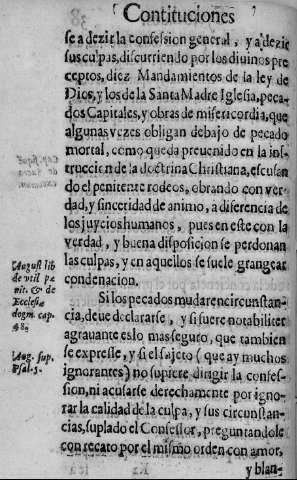 Contituciones
se a dezir la confession general, y a dezir
sus culpas, discurriendo por los diuinos pre
ceptos, diez Mandamientos de la ley de
Dios, y los de la Santa Madre Iglesia, peca-
dos Capitales, y obras de misericordia, que
algunas vezes obligan debajo de pecado
mortal, como queda preuenido en la ins-
truccien de la doctrina Christiana, escusan
do el penitente rodeos, obrando con ver-
dad, y sinceridad de animo, a diferencia de
los juycios humanos, pues en este con la
verdad, y buena disposicion se perdonan
las culpas, y en aquellos se suele grangear
condenacion.
Si los pecados mudaren circunstan-
cia, deue declararse, y si fuere notabiliter
agrauante es lo mas seguro, que tambien
se expresse, y si el sujeto (que ay muchos
ignorantes) no supiere dirigir la confes-
sion, ni acusarse derechamente por igno-
rar la calidad de la culpa, y sus circunstan-
cias, suplado el Confessor, preguntandole
con recato por el mismo orden con amor,
y blan-
August. lib
de vtil pæ
nit. & de
Ecclesiæ
dogm. cap.
48.
Aug. sup.
Psal. 5.